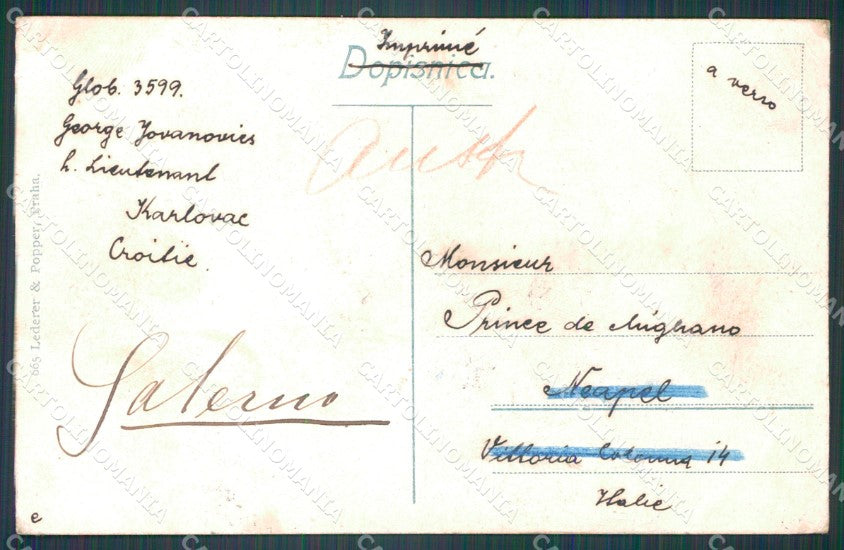 Imprimé
Dopisnica.
a verso
Glob. 3599.
George Jovanovics
h. Lieutenant
Karlovac
Croitie
Salerno
e
665 Lederer & Popper, Praha.
Monsieur
Prince de Mighano
Neapel
Vittoria Colonna 14
Italie
CARTOLINOMANIA